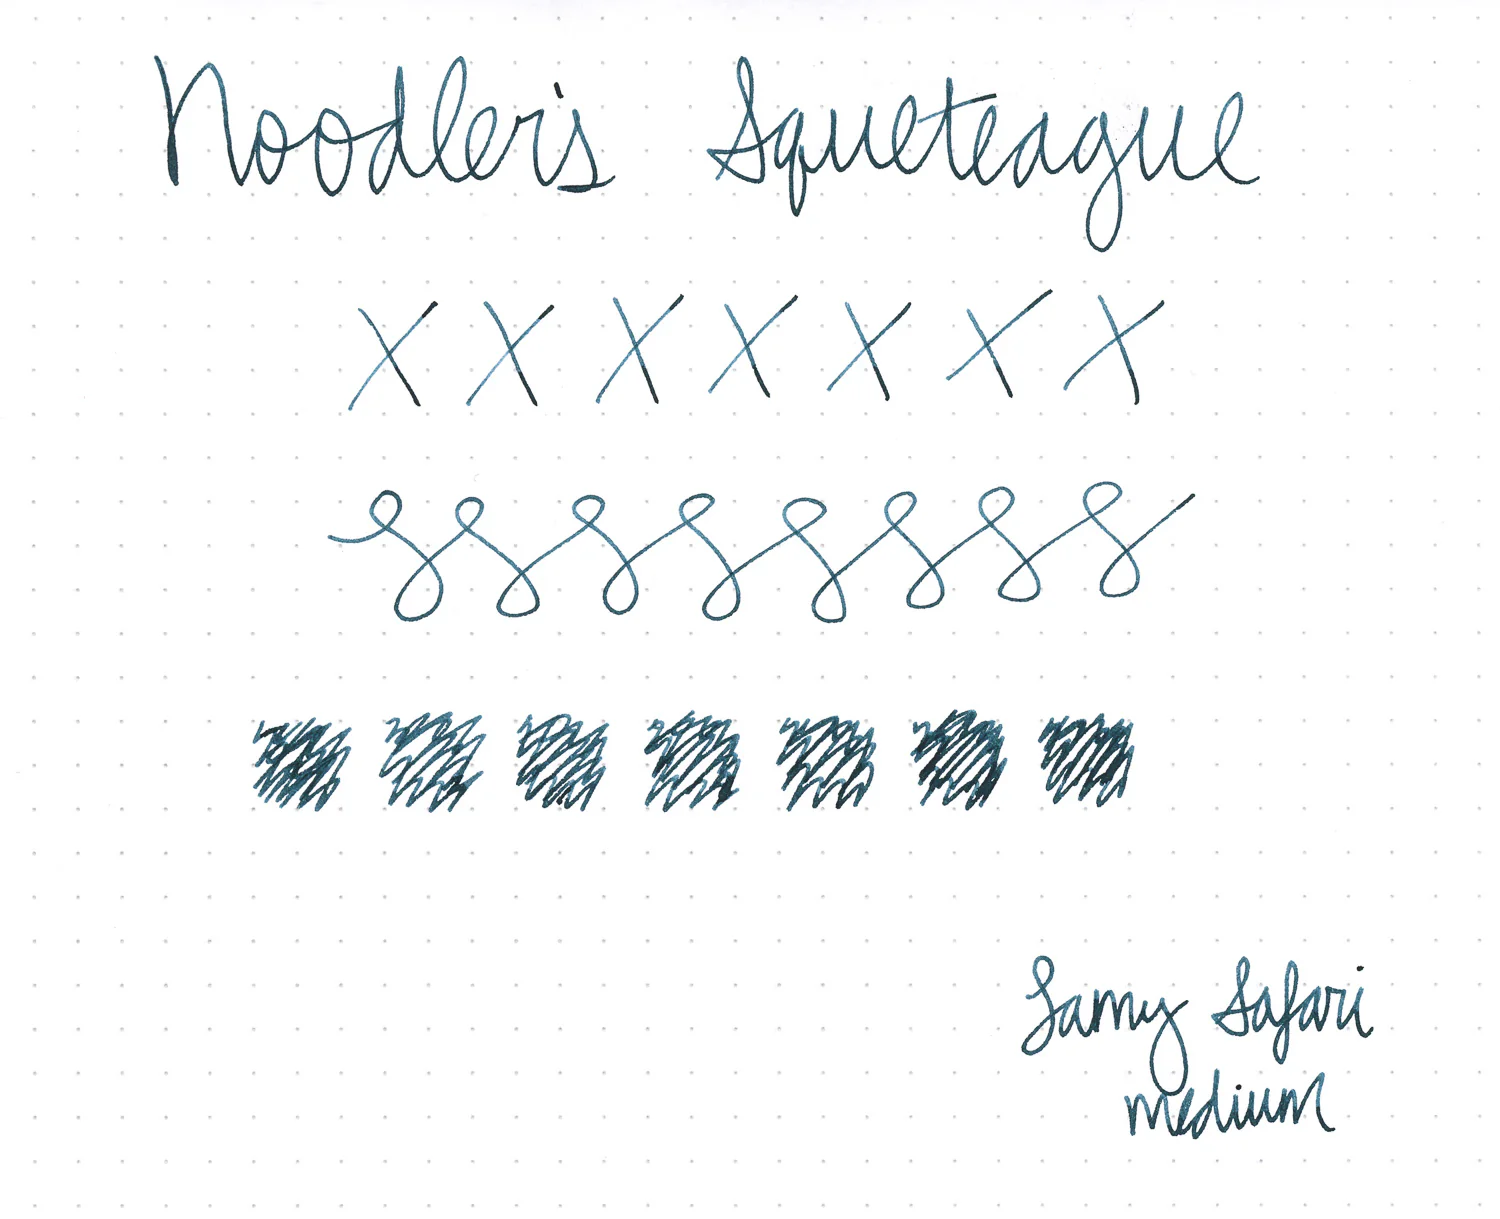 Noodler's Squeteague
X X X X X X X
Lamy Safari
medium